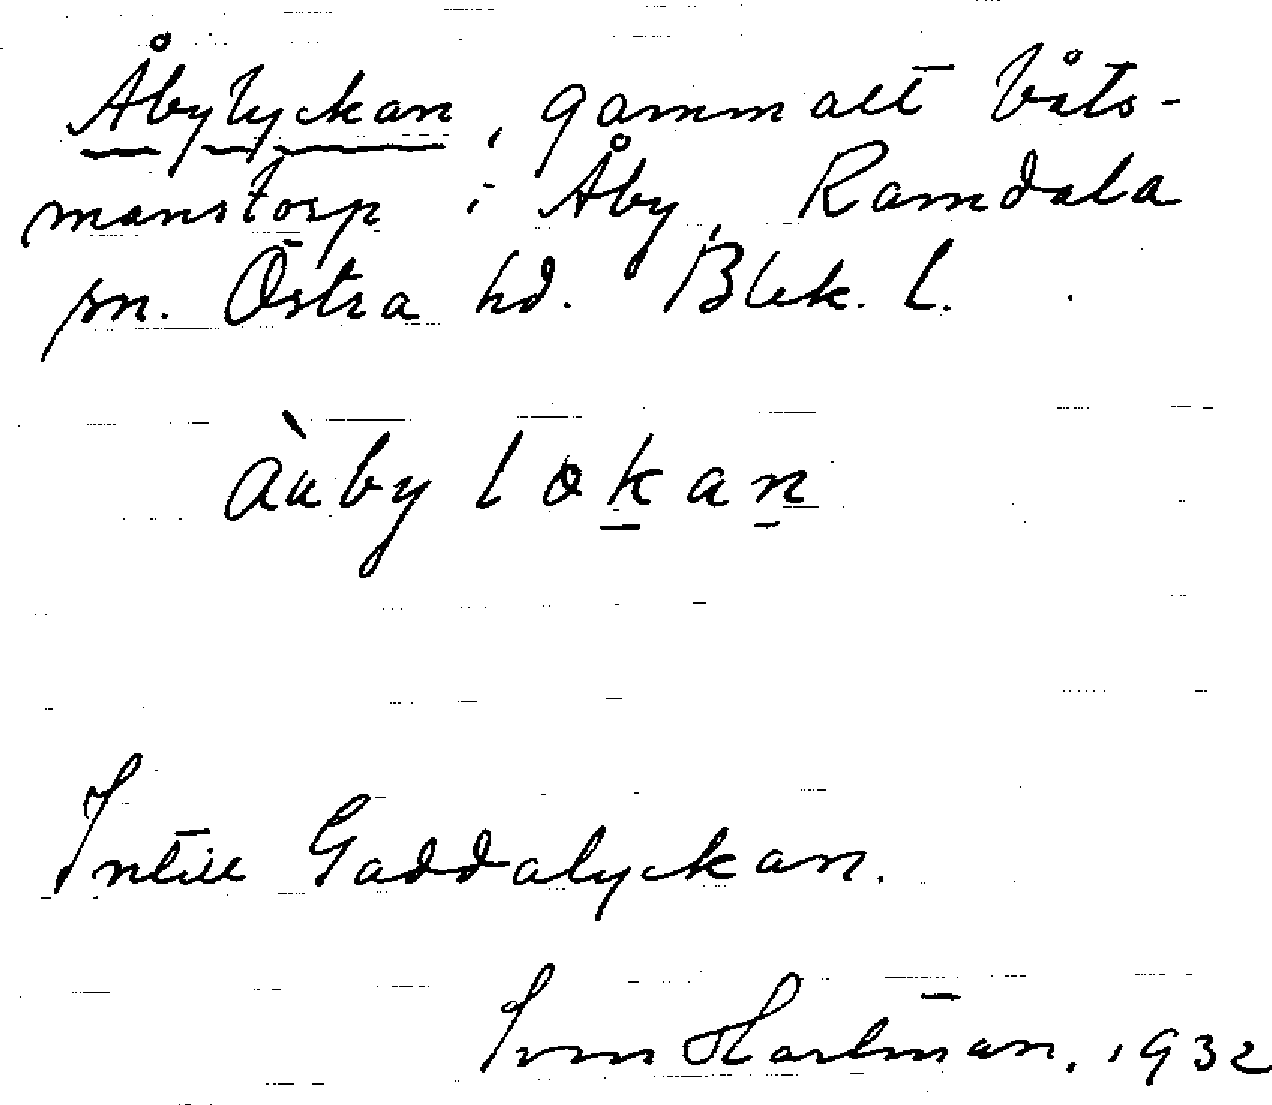 Åbylyckan, gammalt båts-
manstorp i Åby, Ramdala
sn. Östra hd. Blek. l.
àuby lokan
Intill Gaddalyckan.
Sven Hartman. 1932